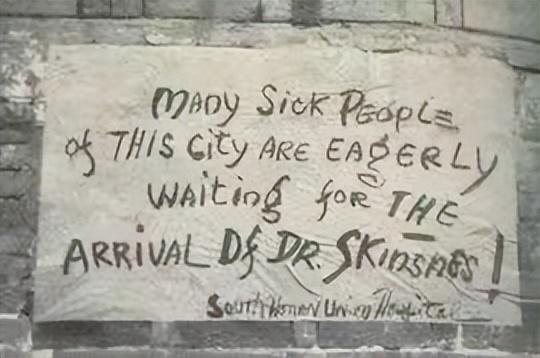 MANY Sick PEOPLE
of THIS City ARE EAGERLY
WAiting for THE
ARRiVAL Of DR. SKinsnes!
South Honan Union Hospital